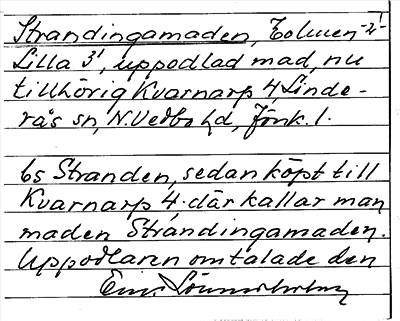 Strandingamaden, Tolmen 2¹
Lilla 3¹, uppodlad mad, nu
tillhörig Kvarnarp 4, Linde-
rås sn, N. Vedbo hd, Jönk. l.
bs Stranden, sedan köpt till
Kvarnarp 4. där kallar man
maden Strandingamaden.
Uppodlaren omtalade den